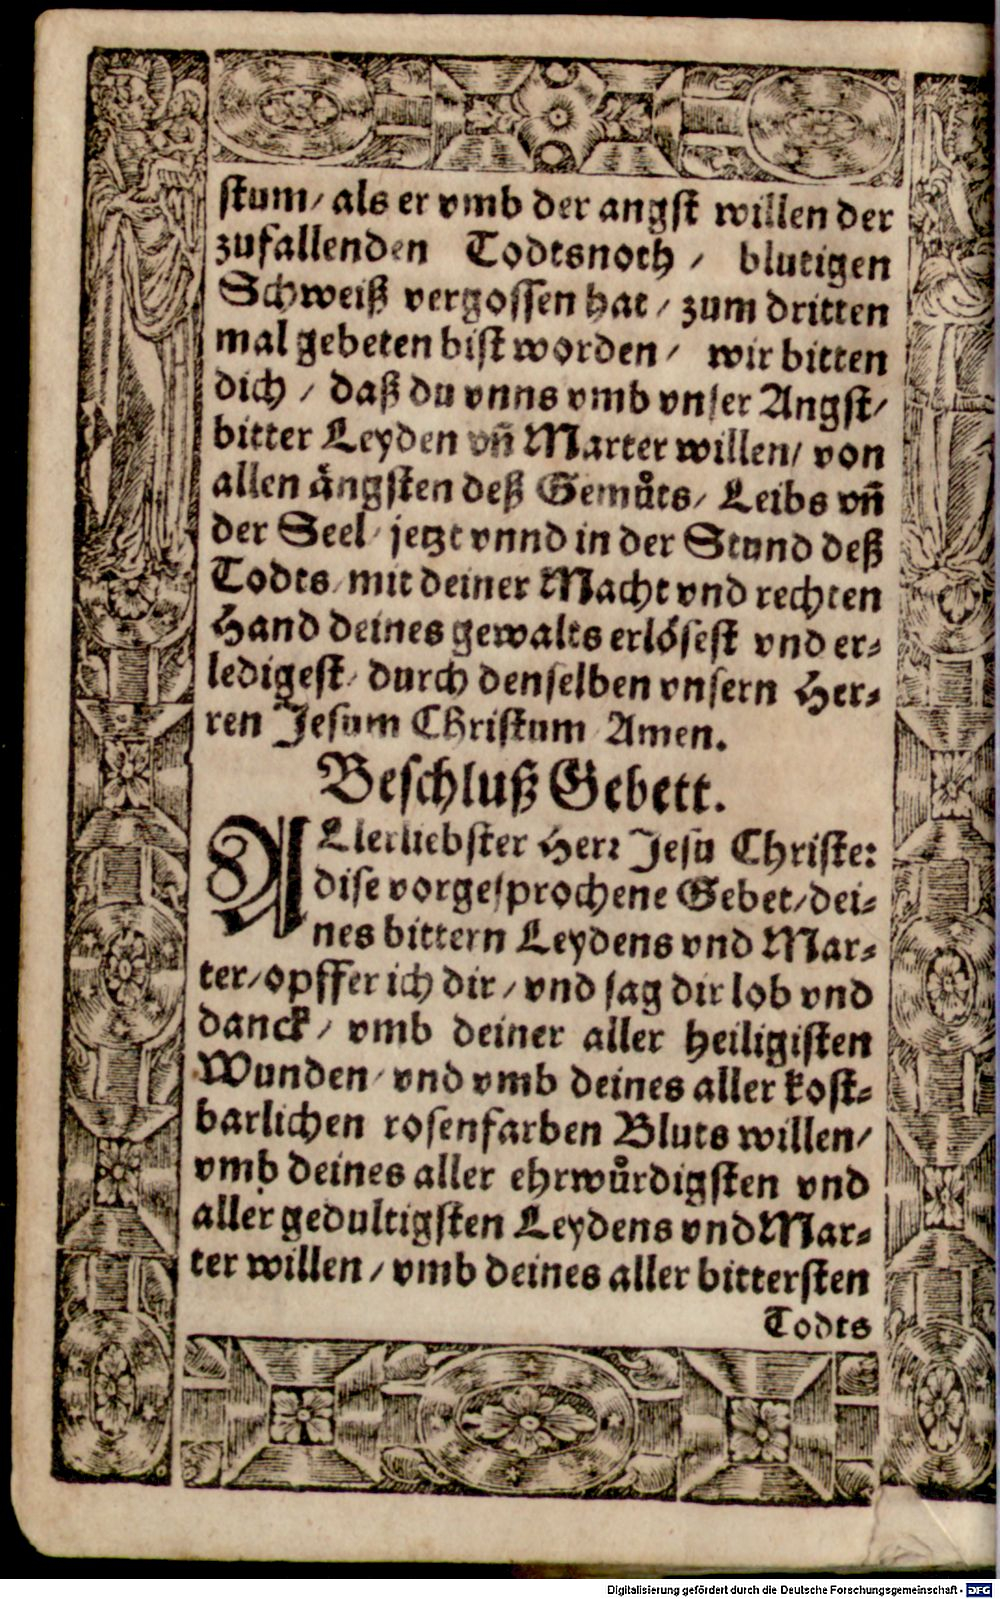 stum/ als er vmb der angst willen der
zufallenden Todtsnoth / blutigen
Schweiß vergossen hat / zum dritten
mal gebeten bist worden / wir bitten
dich / daß du vnns vmb vnser Angst/
bitter Leyden vñ Marter willen/ von
allen ängsten deß Gemuͤts/ Leibs vñ
der Seel/ jetzt vnnd in der Stund deß
Todts/ mit deiner Macht vnd rechten
Hand deines gewalts erlösest vnd er⸗
ledigest/ durch denselben vnsern Her⸗
ren Jesum Christum Amen.
Beschluß Gebett.
ALlerliebster Herr Jesu Christe:
dise vorgesprochene Gebet/ dei⸗
nes bittern Leydens vnd Mar⸗
ter/ opffer ich dir / vnd sag dir lob vnd
danck / vmb deiner aller heiligisten
Wunden/ vnd vmb deines aller kost⸗
barlichen rosenfarben Bluts willen/
vmb deines aller ehrwuͤrdigsten vnd
aller gedultigsten Leydens vnd Mar⸗
ter willen / vmb deines aller bittersten
Todts
Digitalisierung gefördert durch die Deutsche Forschungsgemeinschaft - DFG